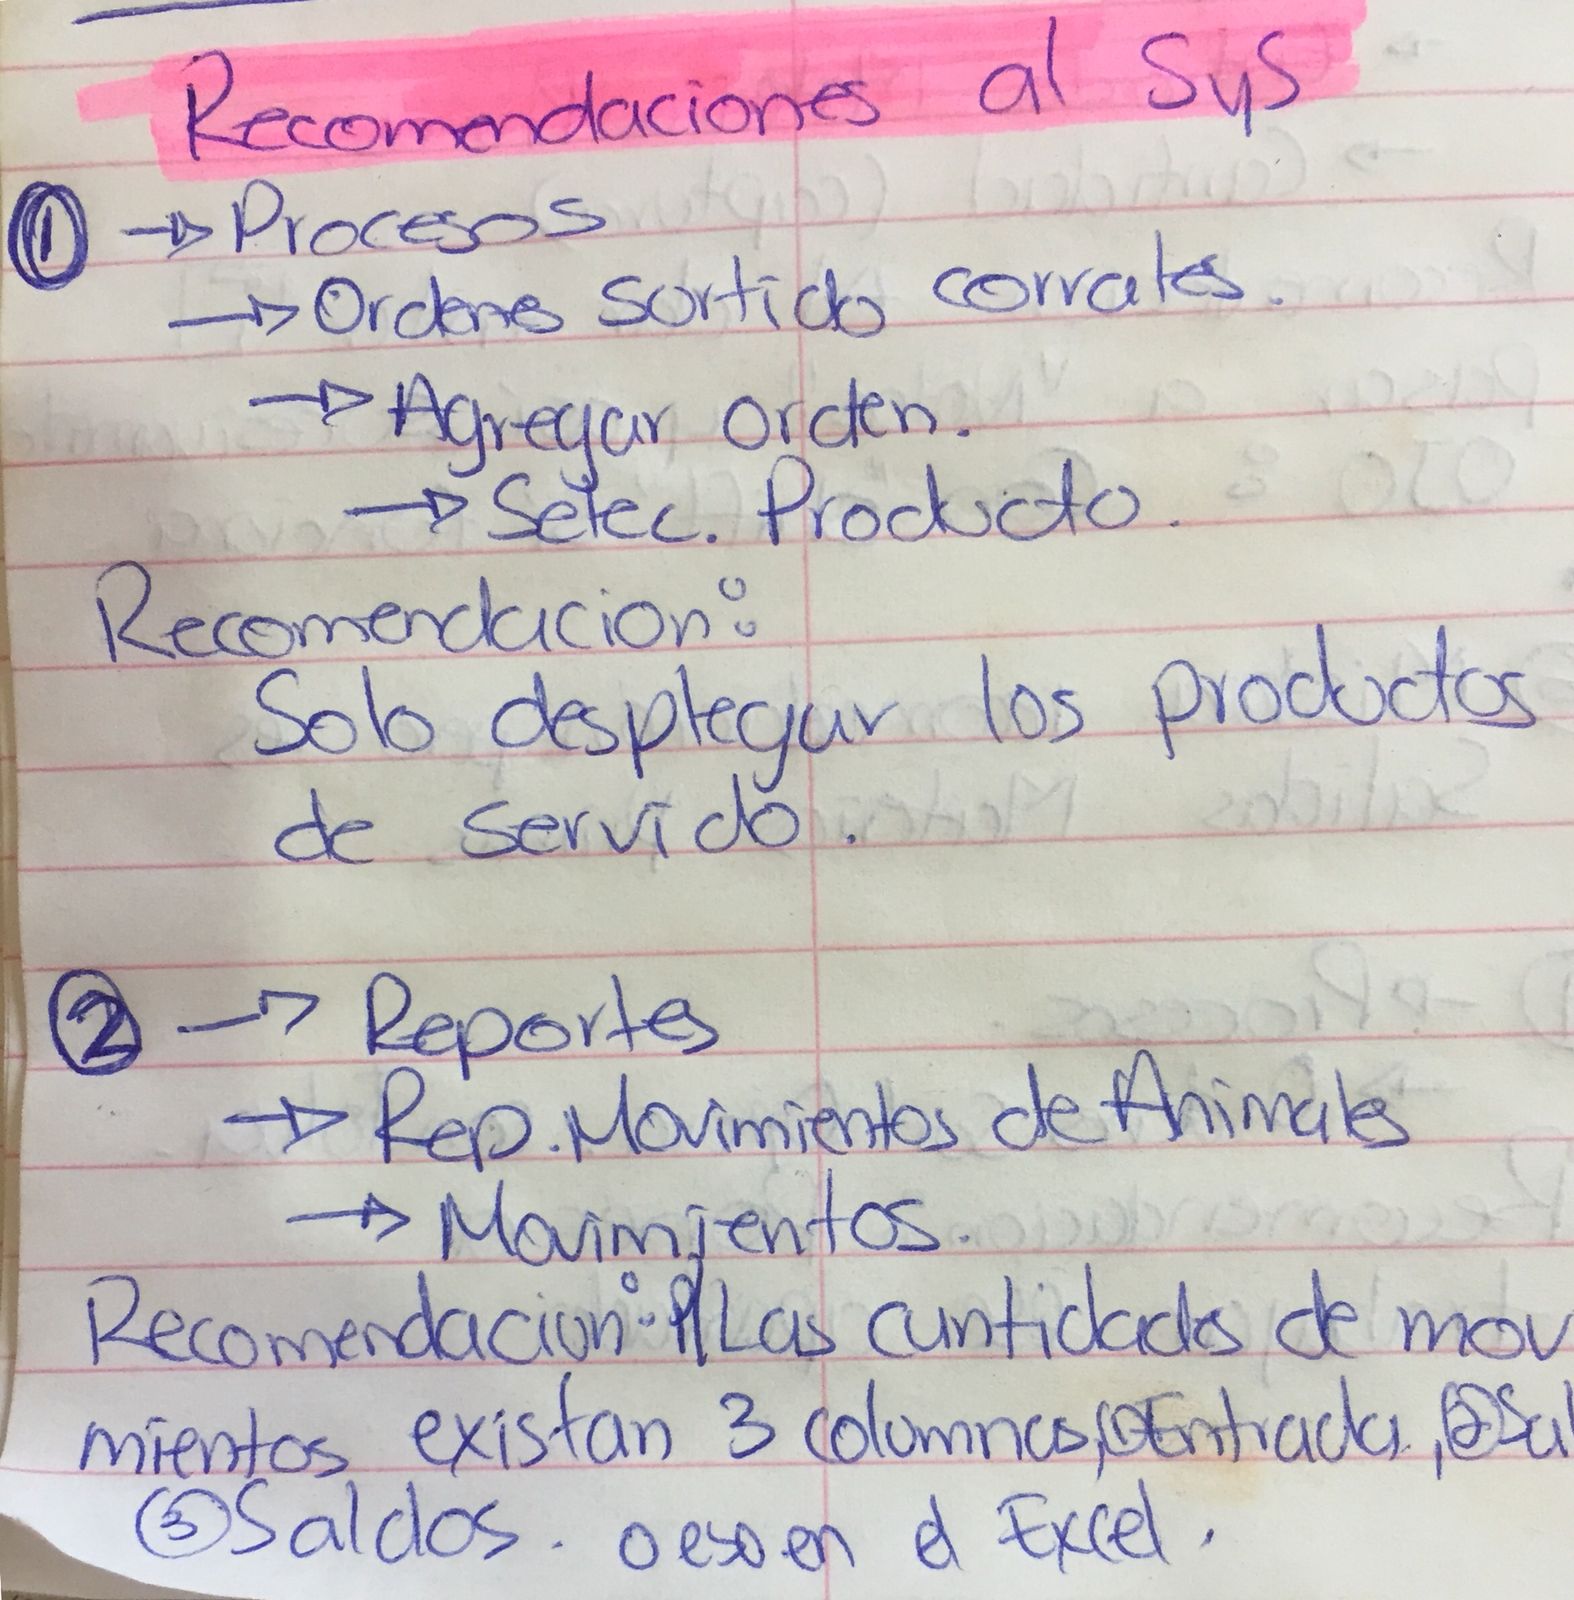 Recomendaciones al Sys
① → Procesos
→ Ordenes surtido corrales.
→ Agregar orden.
→ Selec. Producto.
Recomendacion:
Solo desplegar los productos
de servido.
② → Reportes
→ Rep. Movimientos de Animales
→ Movimientos.
Recomendacion: P/Las cantidades de mov
mientos existan 3 columnas, ① Entrada, ② Sal
③ Saldos. o eso en el Excel.